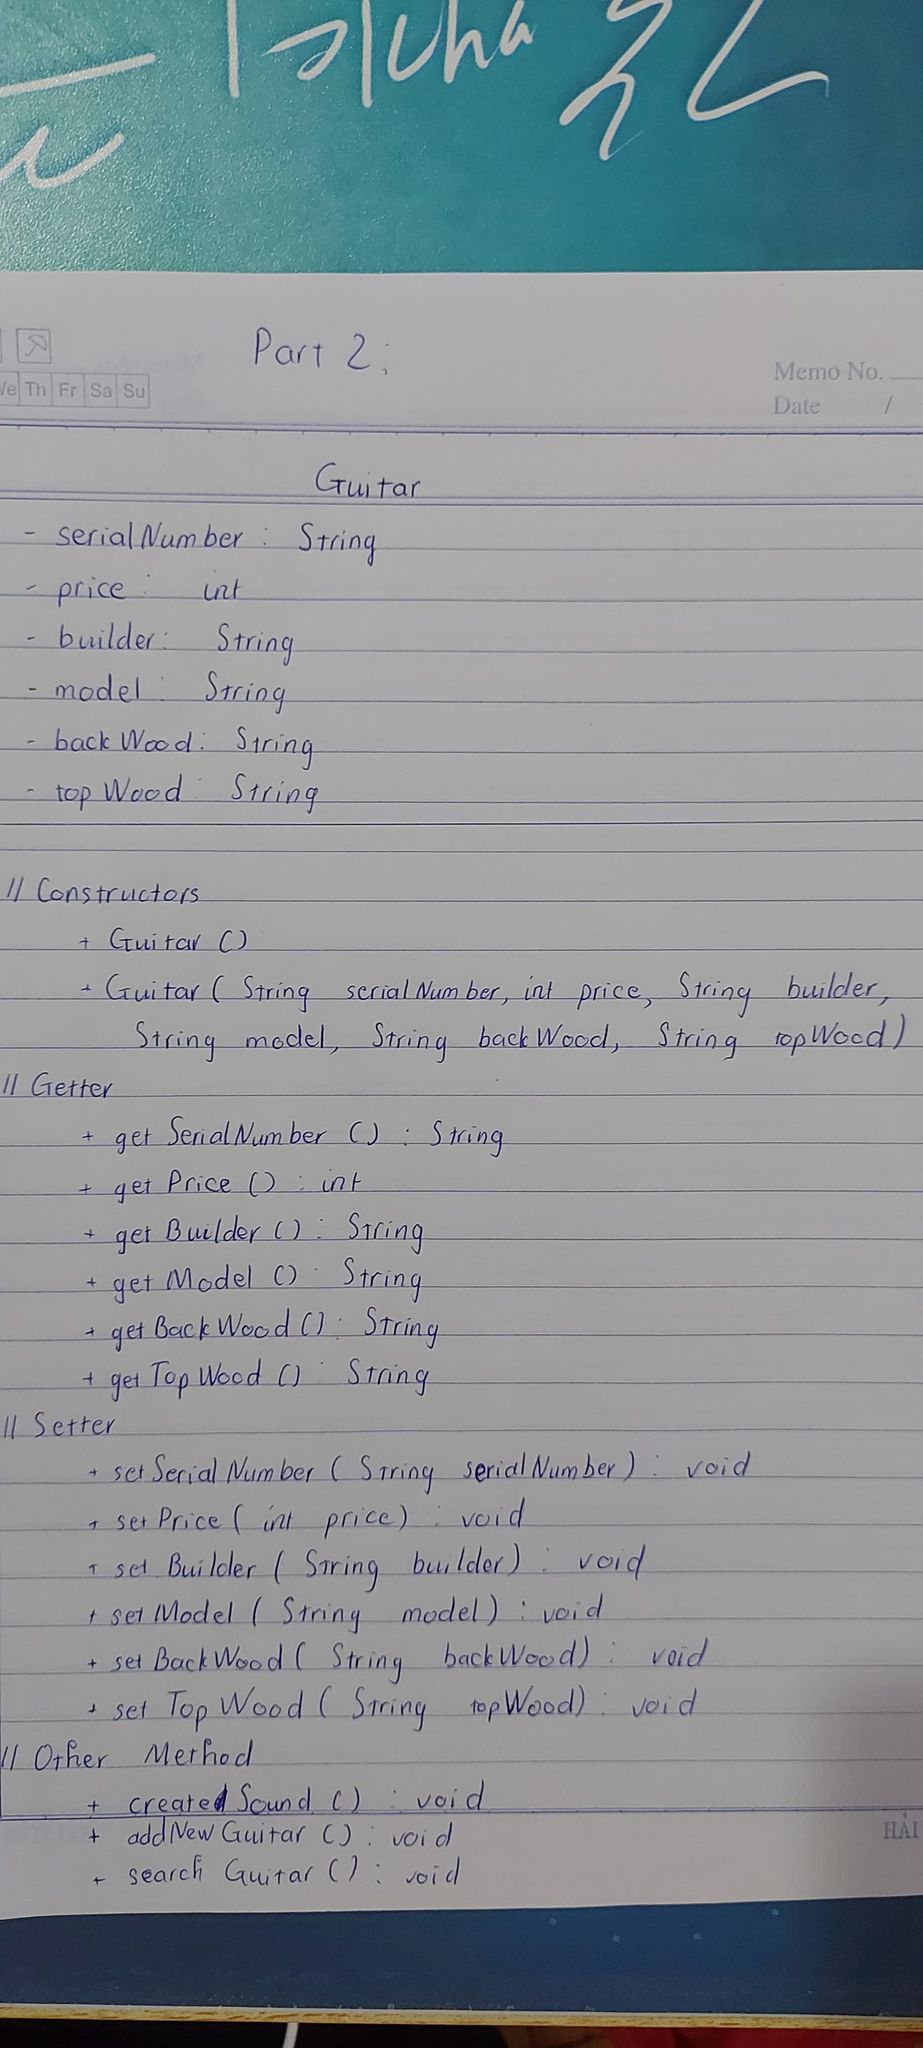 Part 2:
Memo No.
Th Fr Sa Su
Date /
Guitar
- serialNumber : String
- price : int
- builder: String
- model : String
- backWood: String
- topWood : String
// Constructors
+ Guitar ()
+ Guitar ( String serialNumber, int price, String builder,
String model, String backWood, String topWood )
// Getter
+ getSerialNumber () : String
+ getPrice () : int
+ getBuilder () : String
+ getModel () : String
+ getBackWood () : String
+ getTopWood () : String
// Setter
+ setSerialNumber ( String serialNumber ) : void
+ setPrice ( int price ) : void
+ setBuilder ( String builder ) : void
+ setModel ( String model ) : void
+ setBackWood ( String backWood ) : void
+ setTopWood ( String topWood ) : void
// Other Method
+ createSound () : void
+ addNewGuitar () : void
HẢI
+ searchGuitar () : void